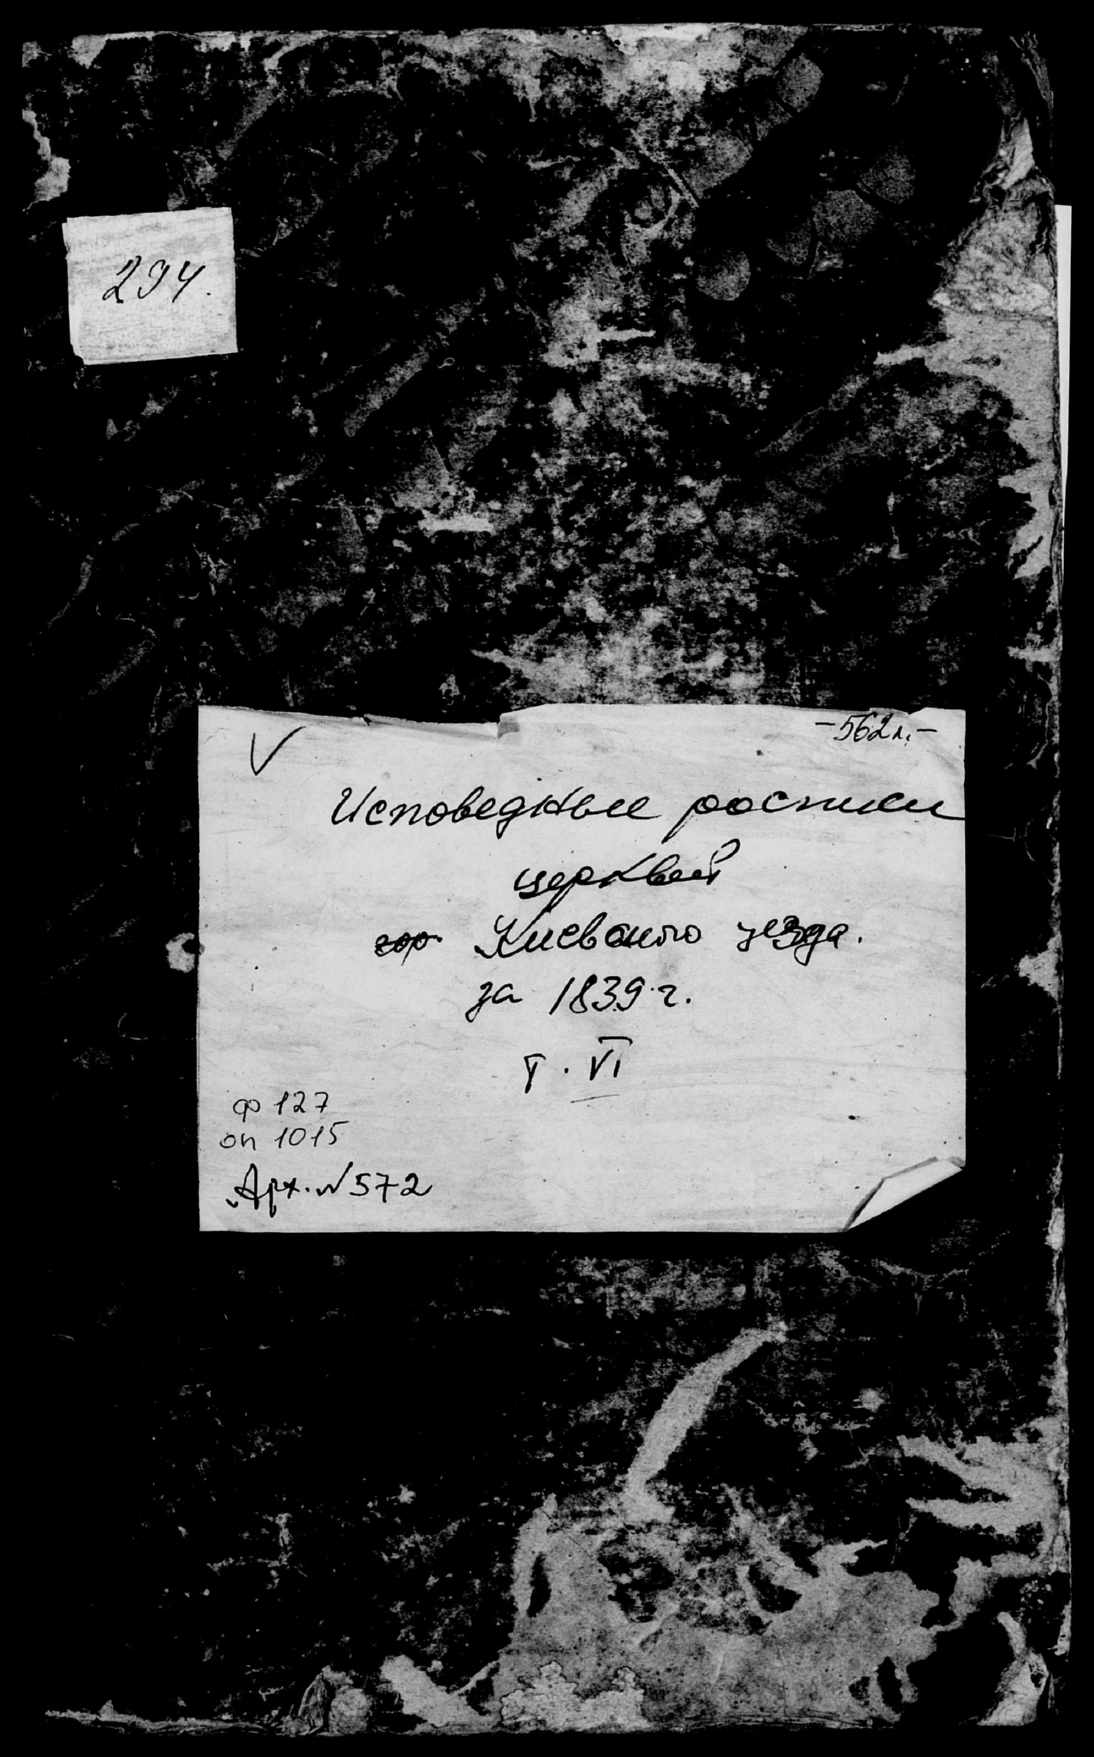 294.
V
-562 л.-
Исповедные росписи
церквей
гор. Киевского уезда.
за 1839 г.
т. VI
ф 127
оп 1015
Арх. № 572